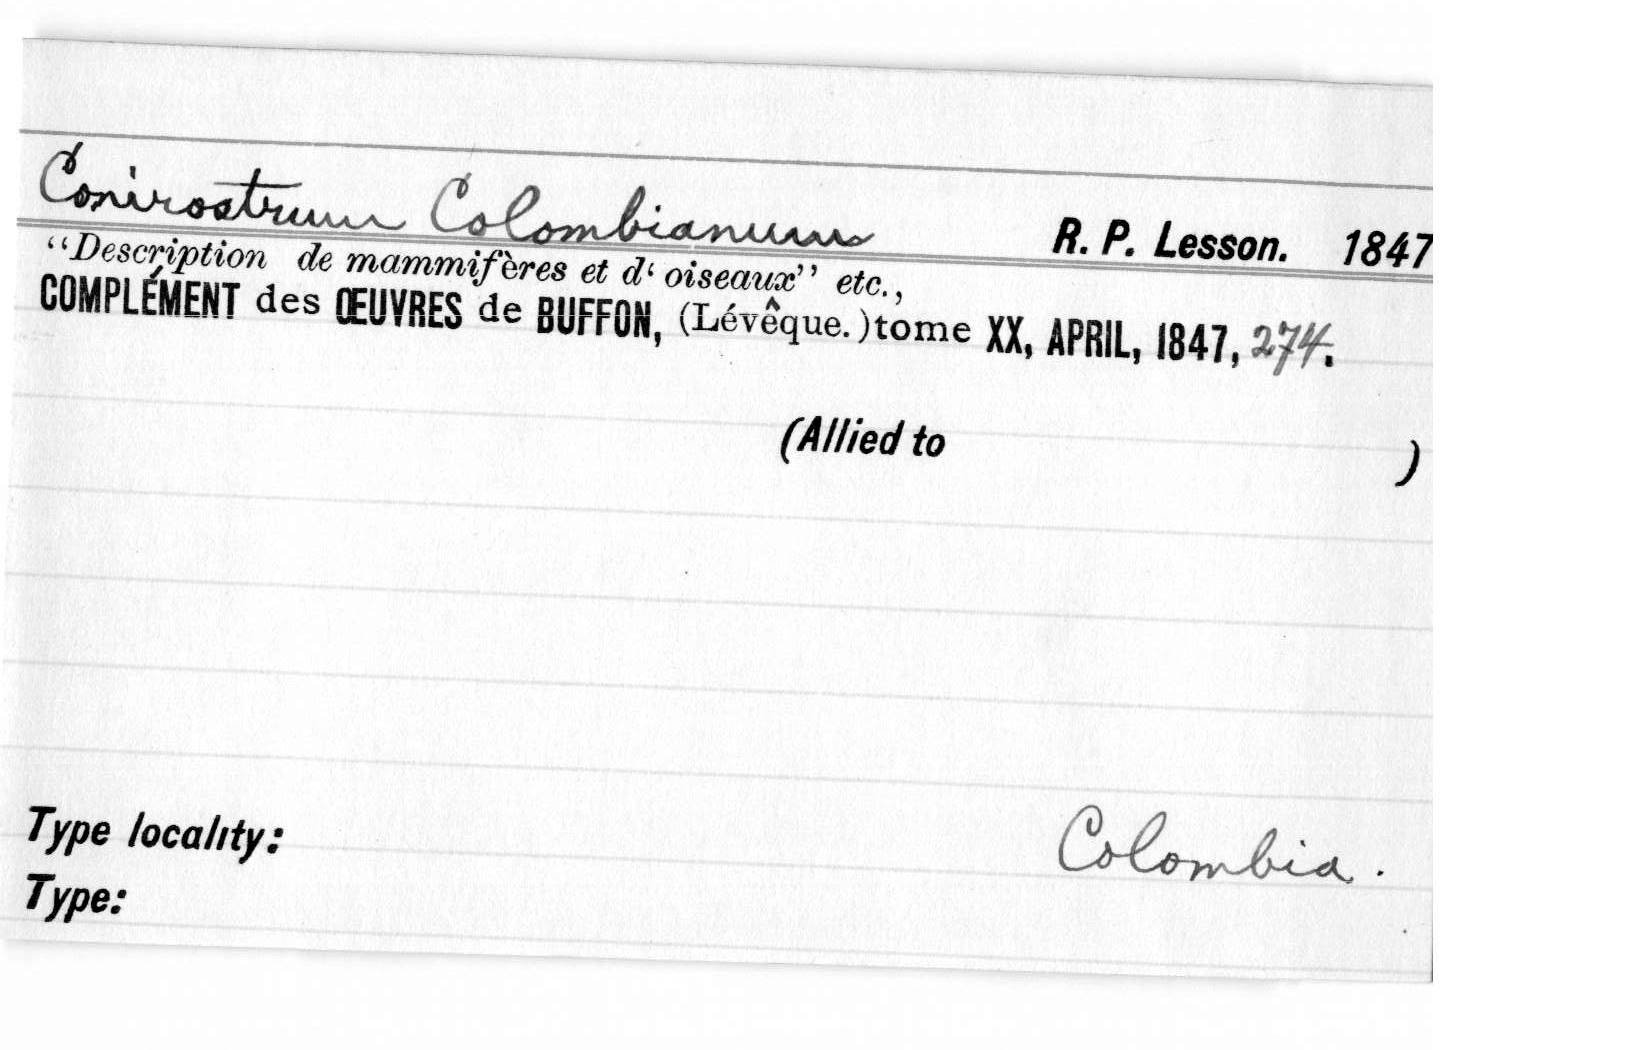 Conirostrum Colombianum R. P. Lesson. 1847
“Description de mammifères et d‘ oiseaux” etc.,
COMPLÉMENT des ŒUVRES de BUFFON, (Lévêque.)tome XX, APRIL, 1847, 274.
(Allied to )
Type locality: Colombia.
Type: